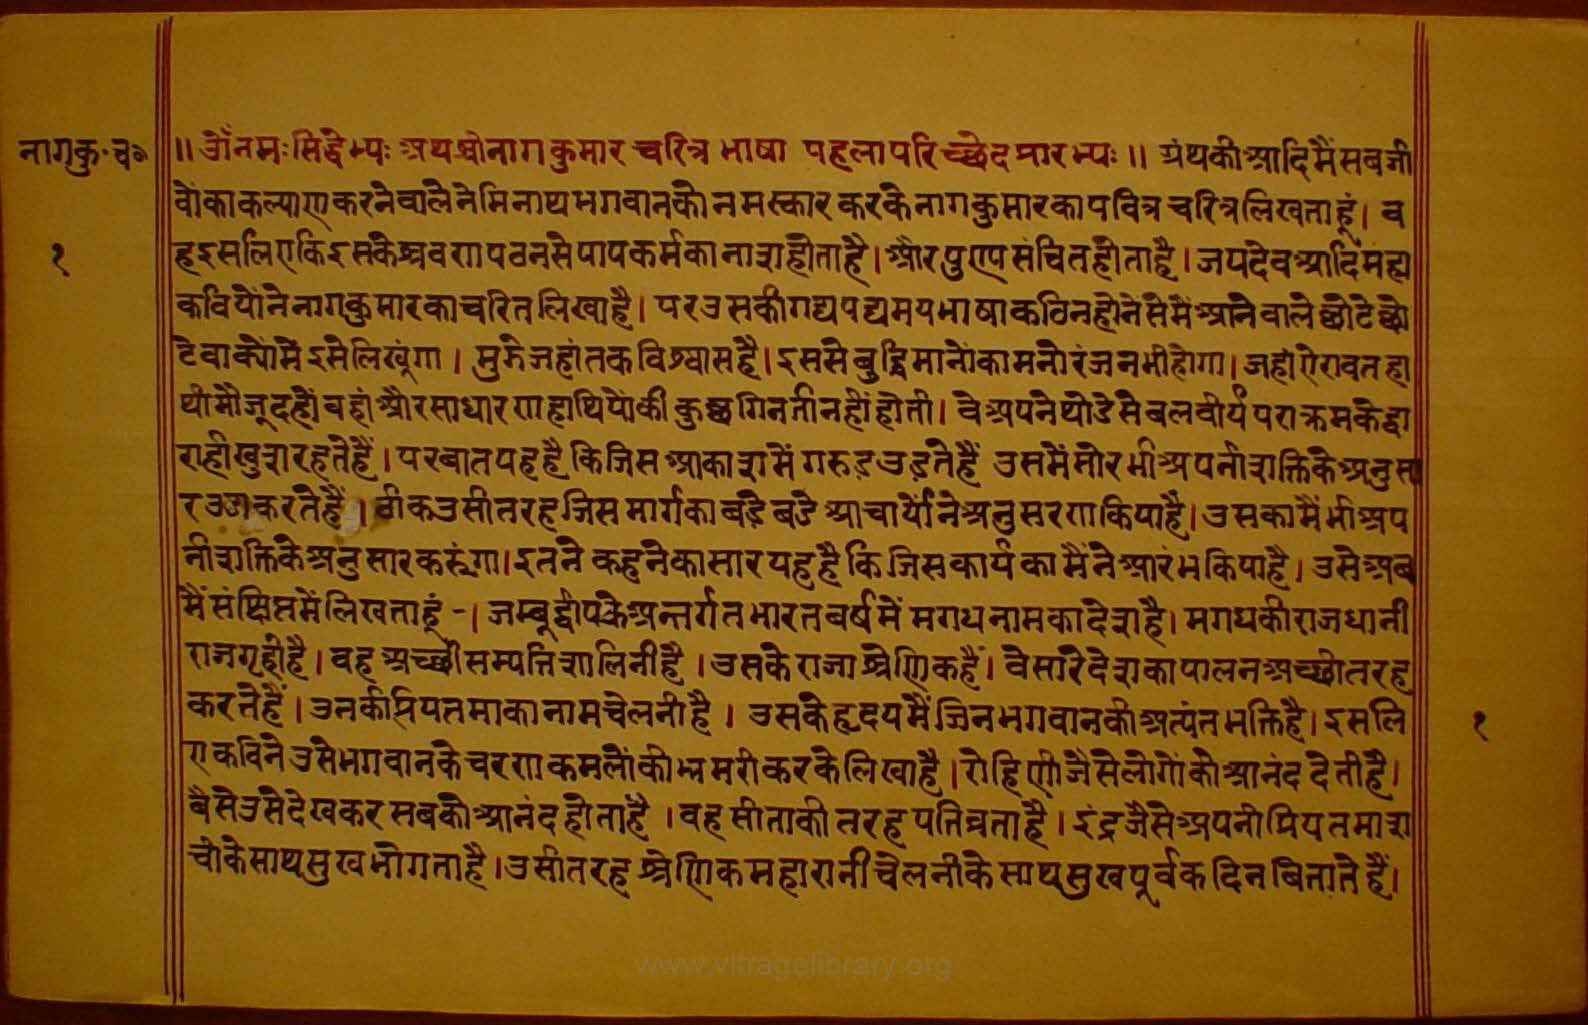 नागकु॰च॰
॥ ॐनमःसिद्धेभ्यः अथश्रीनागकुमार चरित्र भाषा पहलापरिच्छेदप्रारभ्यः ॥ ग्रंथकीआदिमैंसबजी
वोंकाकल्याणकरनेवालेनेमिनाथभगवानकोनमस्कार करकेनागकुमारकापवित्र चरित्रलिखताहूं। व
१
हइसलिएकिइसकेश्रवणपठनसेपापकर्मकानाशहोताहै। औरपुण्यसंचितहोताहै। जयदेवआदिमहा
कवियोंनेनागकुमारकाचरितलिखाहै। परउसकीगद्यपद्यमयभाषाकठिनहोनेसेमैंआनेवालेछोटेछो
टेवाक्योंमेंइसेलिखूंगा। मुझेजहांतकविश्वासहै। इससेबुद्धिमानोंकामनोरंजनभीहोगा। जहांऐरावतहा
थीमौजूदहोंवहांऔरसाधारणहाथियोंकीकुछगिनतीनहींहोती। वेअपनेथोडेसेबलवीर्यपराक्रमकेद्वा
राहीखुशरहतेहैं। परबातयहहैकिजिसआकाशमेंगरुड़उड़तेहैं उसमेंमोरभीअपनीशक्तिकेअनुसा
रउडाकरतेहैं। ठीकउसीतरहजिसमार्गकाबडेबडेआचार्योंनेअनुसरणकियाहै। उसकामैंभीअप
नीशक्तिकेअनुसारकरुंगा। इतनेकहनेकासारयहहैकिजिसकार्यकामैंनेआरंभकियाहै। उसेअब
मैंसंक्षिप्तमेंलिखताहूं -। जम्बूद्वीपकेअन्तर्गतभारतवर्षमेंमगधनामकादेशहै। मगधकीराजधानी
राजगृहीहै। वहअच्छीसम्पत्तिशालिनीहै। उसकेराजाश्रेणिकहैं। वेसारेदेशकापालनअच्छीतरह
करतेहैं। उनकीप्रियतमाकानामचेलनीहै। उसकेहृदयमेंजिनभगवानकीअत्यंतभक्तिहै। इसलि
१
एकविनेउसेभगवानकेचरणकमलोंकीभ्रमरीकरकेलिखाहै। रोहिणीजैसेलोगोंकोआनंददेतीहै।
वैसेउसेदेखकरसबकोआनंदहोताहै। वहसीताकीतरहपतिव्रताहै। इंद्रजैसेअपनीप्रियतमाश
चीकेसाथसुखभोगताहै। उसीतरहश्रेणिकमहारानीचेलनीकेसाथसुखपूर्वकदिनबितातेहैं।
www.vitragelibrary.org